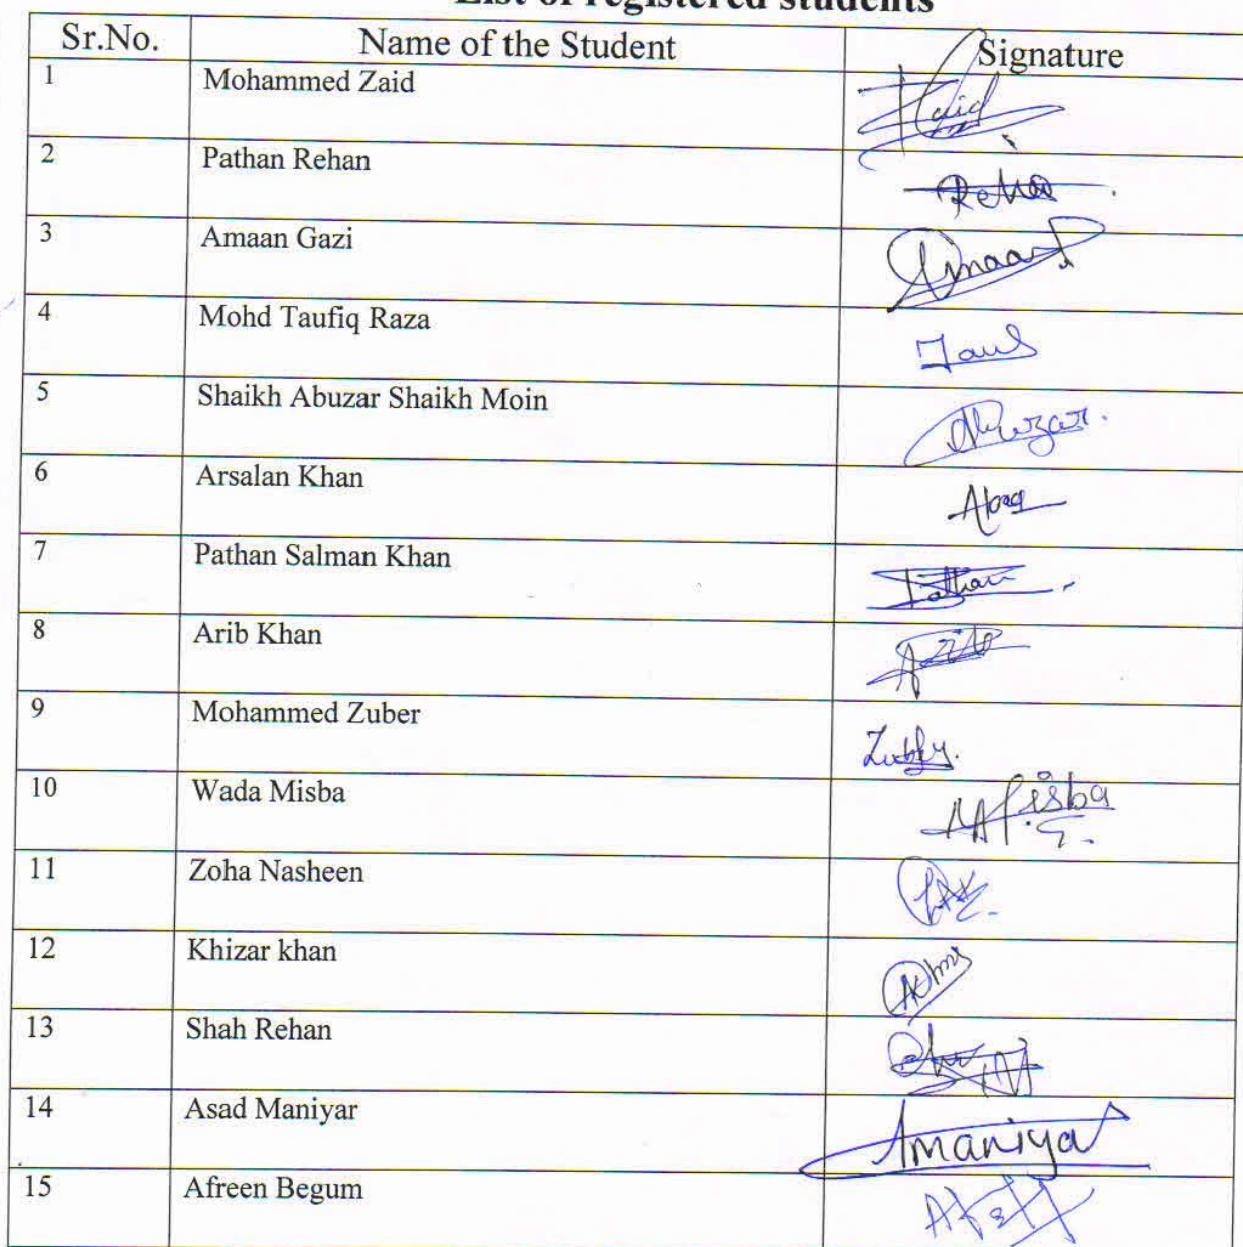 List of registered students
Sr.No. Name of the Student Signature
1 Mohammed Zaid Zaid
2 Pathan Rehan
3 Amaan Gazi Amaan
4 Mohd Taufiq Raza
5 Shaikh Abuzar Shaikh Moin Abuzar.
6 Arsalan Khan
7 Pathan Salman Khan Pathan
8 Arib Khan
9 Mohammed Zuber
10 Wada Misba Misba
11 Zoha Nasheen
12 Khizar khan
13 Shah Rehan
14 Asad Maniyar Amaniyar
15 Afreen Begum